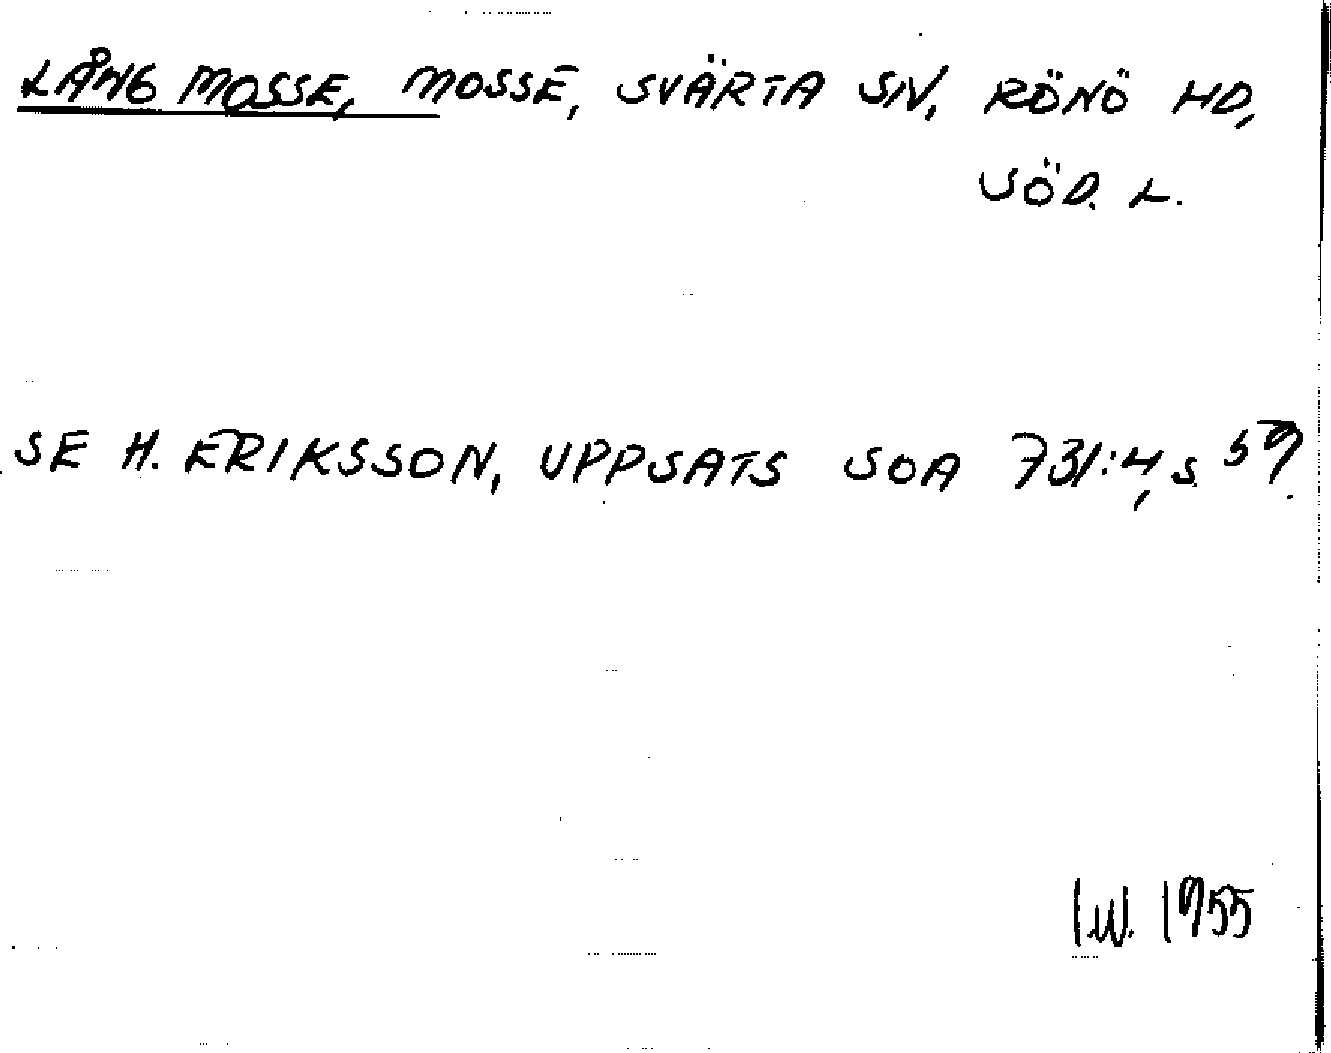 LÅNG MOSSE, MOSSE, SVÄRTA SN, RÖNÖ HD,
SÖD. L.
SE H. ERIKSSON, UPPSATS SOA 731:4, S 59.
I.W. 1955